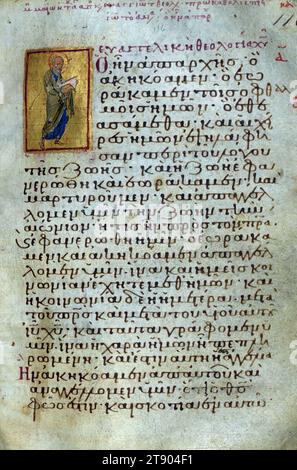 Ὃ ἦν ἀπ' ἀρχῆς ὃ
ἀκηκόαμεν ὃ ἑωρά
καμεν τοῖς ὀφθαλ
μοῖς ἡμῶν ὃ ἐθε
ασάμεθα καὶ αἱ χεῖ
ρες ἡμῶν ἐψηλάφη
σαν περὶ τοῦ λόγου
τῆς ζωῆς καὶ ἡ ζωὴ ἐφα
νερώθη καὶ ἑωράκαμεν καὶ
μαρτυροῦμεν καὶ ἀπαγγέλ
λομεν ὑμῖν τὴν ζωὴν τὴν
αἰώνιον ἥτις ἦν πρὸς τὸν πρα
καὶ ἐφανερώθη ἡμῖν ὃ ἑωράκα
μεν καὶ ἀκηκόαμεν ἀπαγγέλ
λομεν ὑμῖν ἵνα καὶ ὑμεῖς κοι
νωνίαν ἔχητε μεθ' ἡμῶν καὶ
ἡ κοινωνία δὲ ἡ ἡμετέρα μετὰ
τοῦ πρς καὶ μετὰ τοῦ υἱοῦ αὐτοῦ
ιυ χυ καὶ ταῦτα γράφομεν ὑ
μῖν ἵνα ἡ χαρὰ ἡμῶν ᾖ πεπλη
ρωμένη καὶ ἔστιν αὕτη ἡ
ἣν ἀκηκόαμεν ἀπ' αὐτοῦ καὶ
ἀναγγέλλομεν ὑμῖν ὅτι ὁ θς
φῶς ἐστιν καὶ σκοτία ἐν αὐτῷ
alamy
Image ID: 2T904F1
www.alamy.com